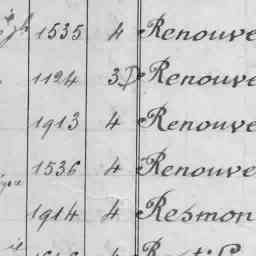 1535 4 Renouve
1124 3 D Renouve
1913 4 Renouve
1536 4 Renouve
1914 4 Resmon